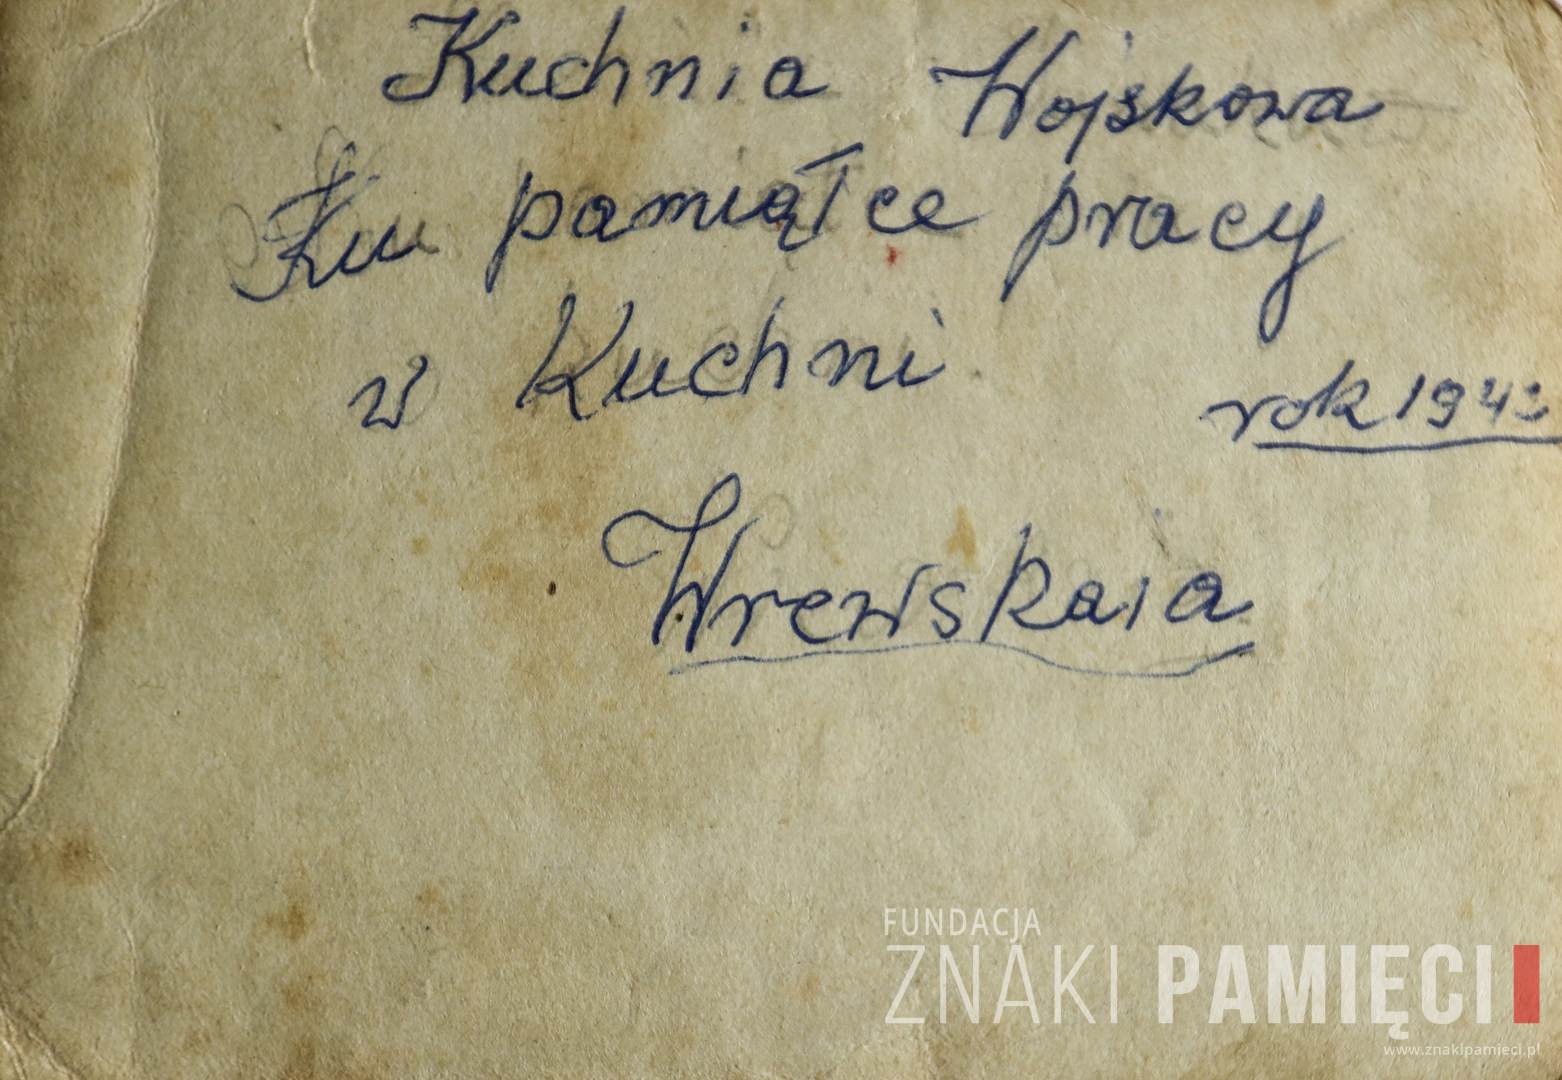 Kuchnia Wojskowa
Ku pamiątce pracy
w Kuchni
rok 1943
Wrewskaia
FUNDACJA
ZNAKI PAMIĘCI
www.znakipamieci.pl